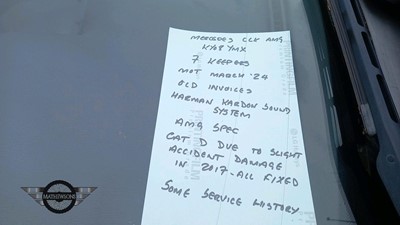 MERCEDES CLK AMG
KY08 YMX
7 KEEPERS
MOT MARCH '24
OLD INVOICES
HARMAN KARDON SOUND
SYSTEM
AMG SPEC
CAT D DUE TO SLIGHT
ACCIDENT DAMAGE
IN 2017 - ALL FIXED
SOME SERVICE HISTORY
MATHEWSONS